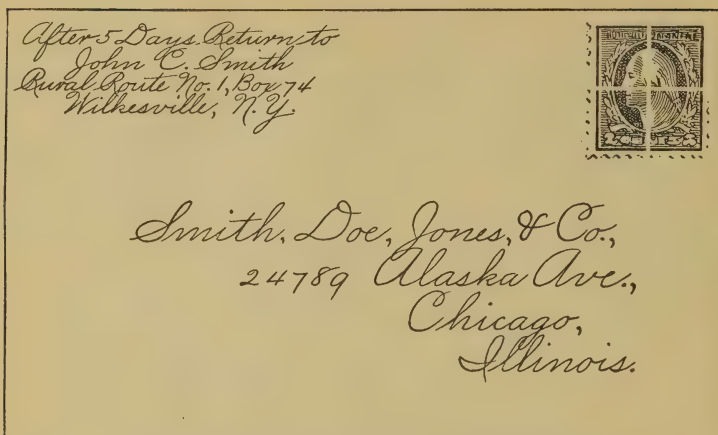 After 5 Days Return to
John C. Smith
Rural Route No. 1, Box 74
Wilkesville, N. Y.
Smith, Doe, Jones, & Co.,
24789 Alaska Ave.,
Chicago,
Illinois.